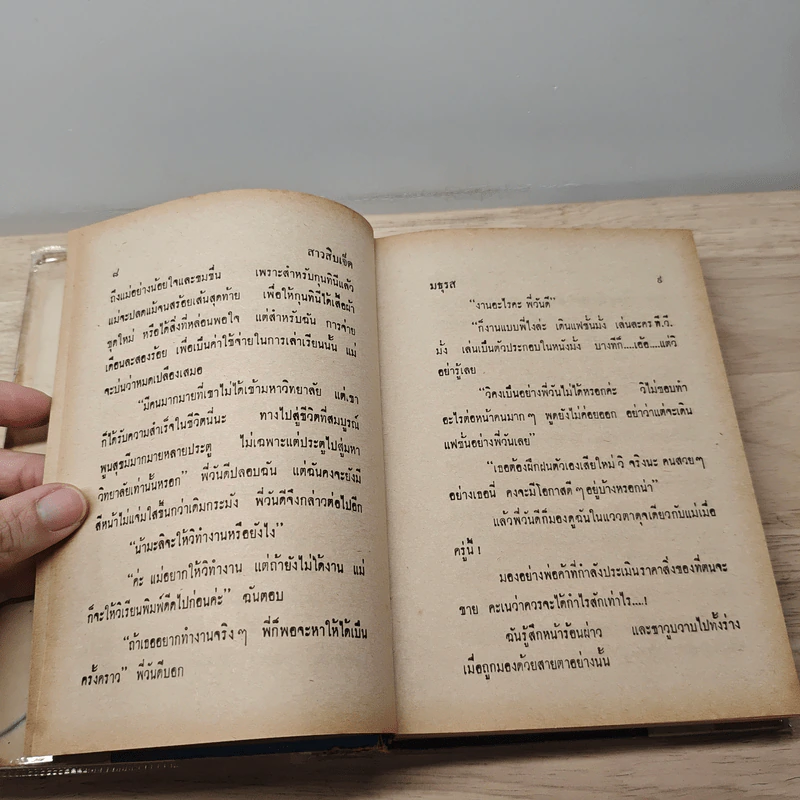 ๘ สาวสิบเจ็ด
ถึงแม่อย่างน้อยใจและขมขื่น เพราะสำหรับกุนทินีแล้ว
แม่จะปลดแม้จนสร้อยเส้นสุดท้าย เพื่อให้กุนทินีได้เสื้อผ้า
ชุดใหม่ หรือได้สิ่งที่หล่อนพอใจ แต่สำหรับฉัน การจ่าย
เดือนละสองร้อย เพื่อเป็นค่าใช้จ่ายในการเล่าเรียนนั้น แม่
จะบ่นว่าหมดเปลืองเสมอ
“มีคนมากมายที่เขาไม่ได้เข้ามหาวิทยาลัย แต่เขา
ก็ได้รับความสำเร็จในชีวิตนี่นะ ทางไปสู่ชีวิตที่สมบูรณ์
พูนสุขมีมากมายหลายประตู ไม่เฉพาะแต่ประตูไปสู่มหา
วิทยาลัยเท่านั้นหรอก” พี่วันดีปลอบฉัน แต่ฉันคงจะยังมี
สีหน้าไม่แจ่มใสขึ้นกว่าเดิมกระมัง พี่วันดีจึงกล่าวต่อไปอีก
“น้ามะลิจะให้วิทำงานหรือยังไง”
“ค่ะ แม่อยากให้วิทำงาน แต่ถ้ายังไม่ได้งาน แม่
ก็จะให้วิเรียนพิมพ์ดีดไปก่อนค่ะ” ฉันตอบ
“ถ้าเธออยากทำงานจริง ๆ พี่ก็พอจะหาให้ได้เป็น
ครั้งคราว” พี่วันดีบอก
มธุรส ๙
“งานอะไรคะ พี่วันดี”
“ก็งานแบบพี่ไงล่ะ เดินแฟชั่นมั่ง เล่นละคร ที.วี.
มั่ง เล่นเป็นตัวประกอบในหนังมั่ง บางทีก็....เอ้อ....แต่วิ
อย่ารู้เลย
“วิคงเป็นอย่างพี่วันไม่ได้หรอกค่ะ วิไม่ชอบทำ
อะไรต่อหน้าคนมาก ๆ พูดยังไม่ค่อยออก อย่าว่าแต่จะเดิน
แฟชั่นอย่างพี่วันเลย”
“เธอต้องฝึกฝนตัวเองเสียใหม่ วิ จริงนะ คนสวย ๆ
อย่างเธอนี่ คงจะมีโอกาสดี ๆ อยู่บ้างหรอกน่า”
แล้วพี่วันดีก็มองดูฉันในแววตาดุจเดียวกับแม่เมื่อ
ครู่นี้ !
มองอย่างพ่อค้าที่กำลังประเมินราคาสิ่งของที่ตนจะ
ขาย คะเนว่าควรจะได้กำไรสักเท่าไร....!
ฉันรู้สึกหน้าร้อนผ่าว และชาวูบวาบไปทั้งร่าง
เมื่อถูกมองด้วยสายตาอย่างนั้น